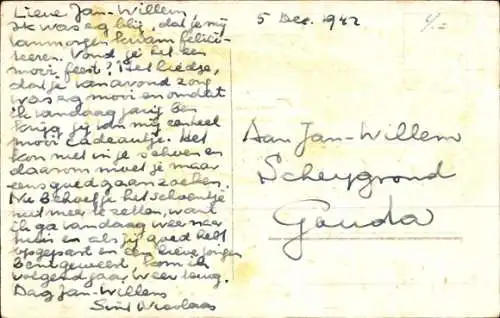 Lieve Jan-Willem
Ik was erg blij, dat je mij
vanmorgen kwam felici-
teeren. Vond je het een
mooi feest? Het liedje,
dat je vanavond zong
was erg mooi en omdat
ik vandaag jarig ben
krijg jij van mij een heel
mooi cadeautje. Het
kon niet in je schoen en
daarom moet je maar
eens goed gaan zoeken.
Nu behoef je het schoentje
niet meer te zetten, want
ik ga vandaag weer naar
huis en als jij goed hebt
opgepast en een lieve jongen
bent geweest, kom ik
volgend jaar weer terug.
Dag Jan-Willem
Sint Nicolaas
5 Dec. 1942
Aan Jan-Willem
Scheygrond
Gouda